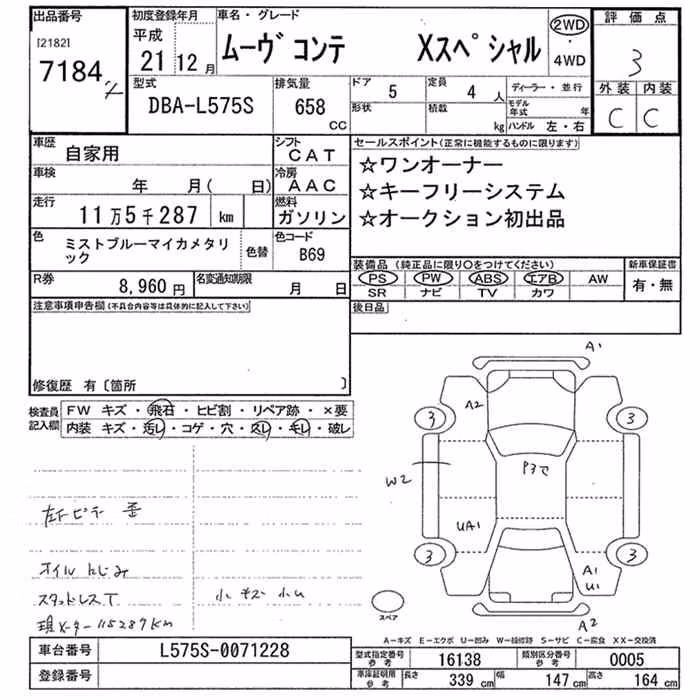 出品番号 初度登録年月 車名・グレード 2WD 評価点
[2182] 平成 ムーヴコンテ Xスペシャル ・4WD 3
7184 21年 12月
型式 排気量 ドア 5 定員 4人 ディーラー・並行 外装 内装
DBA-L575S 658 CC 形状 積載 kg モデル年式 年 ハンドル 左・右 C C
車歴 自家用 シフト CAT セールスポイント(正常に機能するものに限ります)
車検 年 月( 日) 冷房 AAC ☆ワンオーナー
走行 11万5千287 km 燃料 ガソリン ☆キーフリーシステム
☆オークション初出品
色 ミストブルーマイカメタリック 色替 色コード B69
装備品(純正品に限り○をつけてください) 新車保証書
R券 8,960円 名変通知期限 月 日 PS PW ABS エアB AW 有・無
SR ナビ TV カワ
注意事項申告欄(不具合内容等は具体的に記入して下さい) 後日品
修復歴 有〔箇所 〕
検査員記入欄 FW キズ・飛石・ヒビ割・リペア跡・×要
内装 キズ・汚レ・コゲ・穴・スレ・モレ・破レ
A1
A2
3 3
W2 P3で
UA1
3 3
A1
U1
A2
スペア
オイルにじみ
スタッドレスT 小キズ 小U
現メーター115287km
A-キズ E-エクボ U-凹み W-補修跡 S-サビ C-腐食 XX-交換済
車台番号 L575S-0071228 型式指定番号 参考 16138 類別区分番号 参考 0005
登録番号 車庫証明用 参考 長さ 339cm 幅 147cm 高さ 164cm